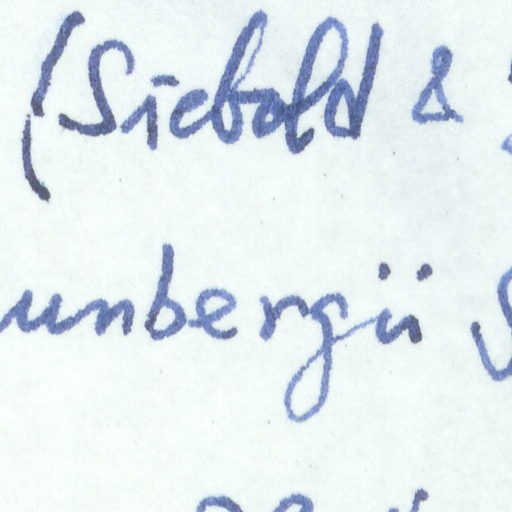 (Siebold &
unbergii